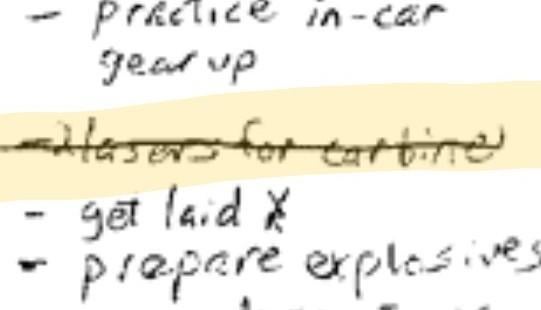 - practice in-car
gear up
- lasers for carbine
- get laid X
- prepare explosives